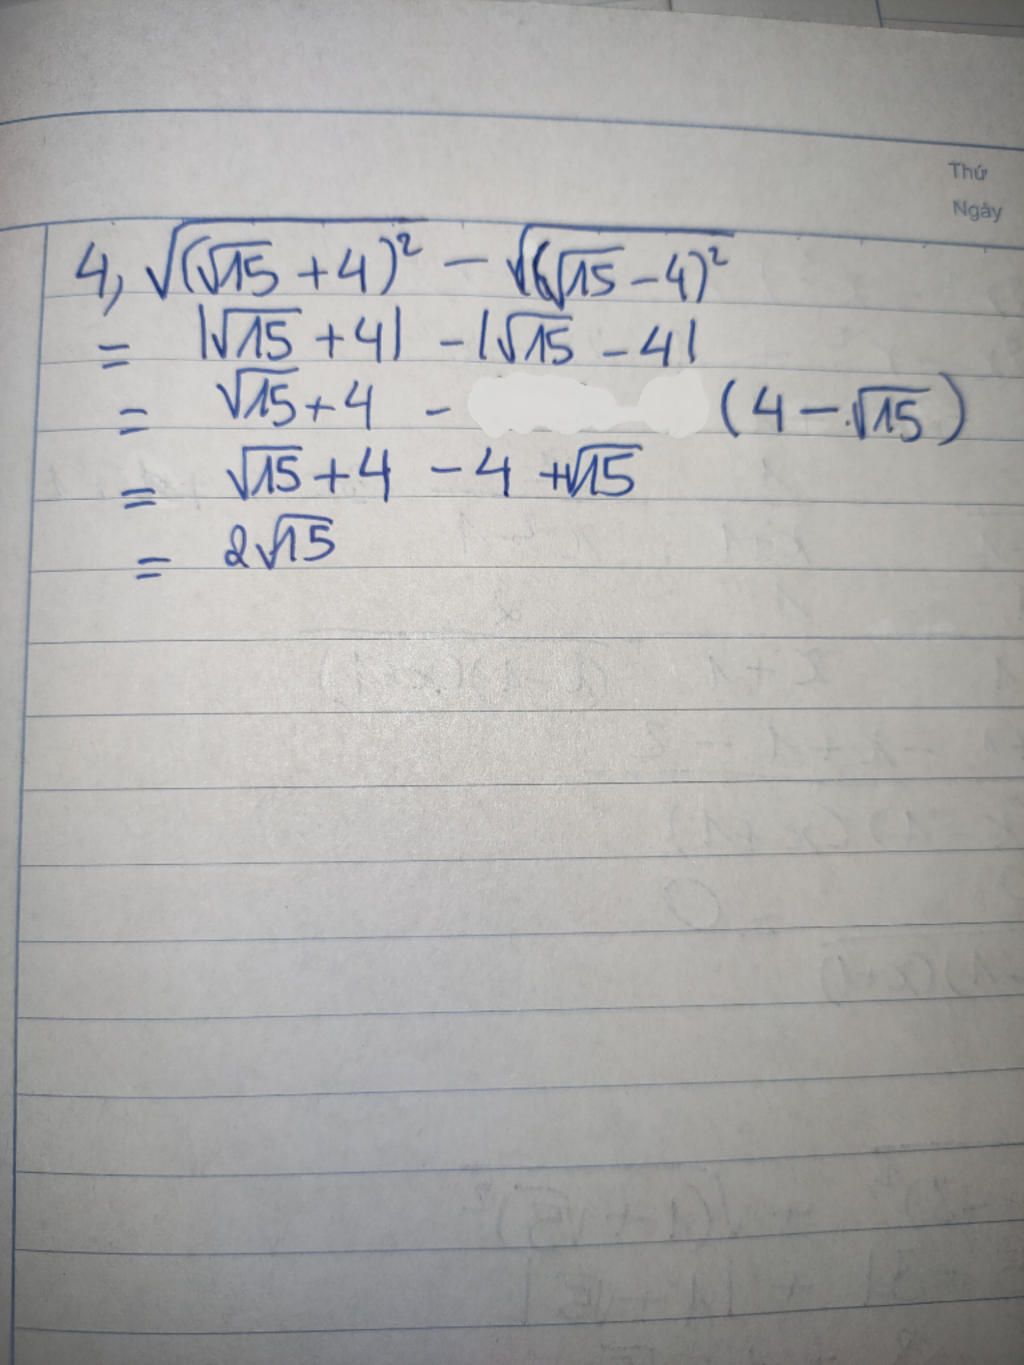 Thứ
Ngày
4, √(√15 + 4)² - √(√15 - 4)²
= |√15 + 4| - |√15 - 4|
= √15 + 4 - (4 - √15)
= √15 + 4 - 4 + √15
= 2√15